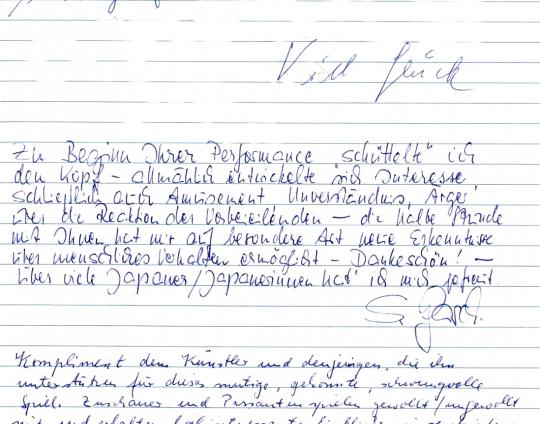 Viel Glück
Zu Beginn Ihrer Performance "schüttelte" ich
den Kopf – allmählich entwickelte sich Interesse
schließlich auch Amüsement Unverständnis, Ärger
über die Reaktion der Vorbeieilenden – die halbe Stunde
mit Ihnen hat mir auf besondere Art neue Erkenntnisse
über menschliches Verhalten ermöglicht – Dankeschön! –
Über viele Japaner/Japanerinnen hab' ich mich gefreut.
Kompliment dem Künstler und denjenigen, die ihn
unterstützen für dieses mutige, gekonnte, schwungvolle
Spiel. Zuschauer und Passanten spielen gewollt/ungewollt
mit und